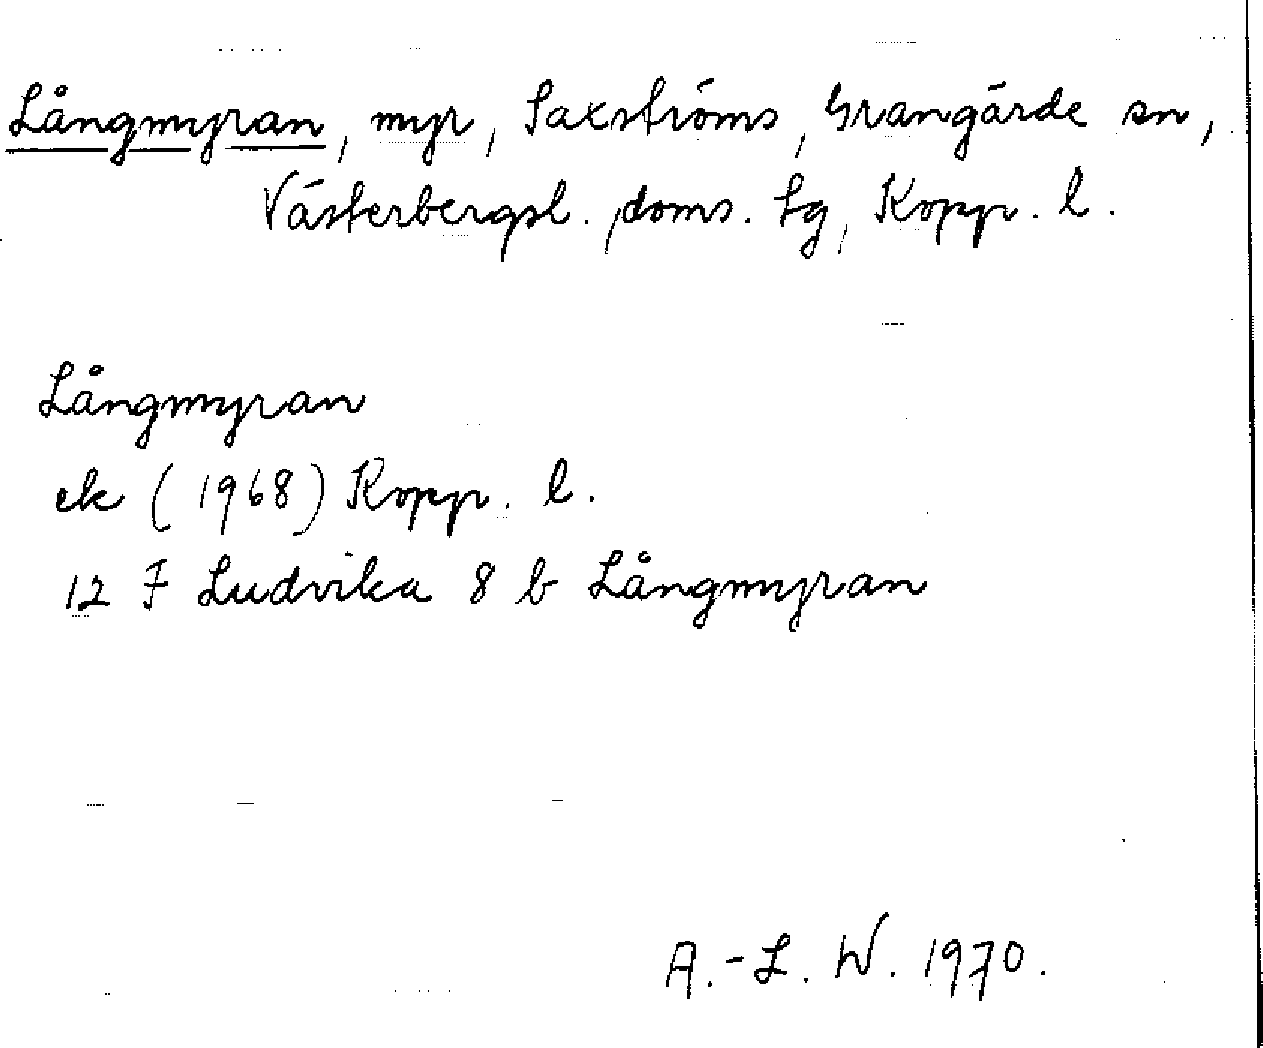 Långmyran, myr, Saxströms, Grangärde sn,
Västerbergsl. doms. tg, Kopp. l.
Långmyran
ek (1968) Kopp. l.
12 F Ludvika 8 b Långmyran
A.-L. W. 1970.